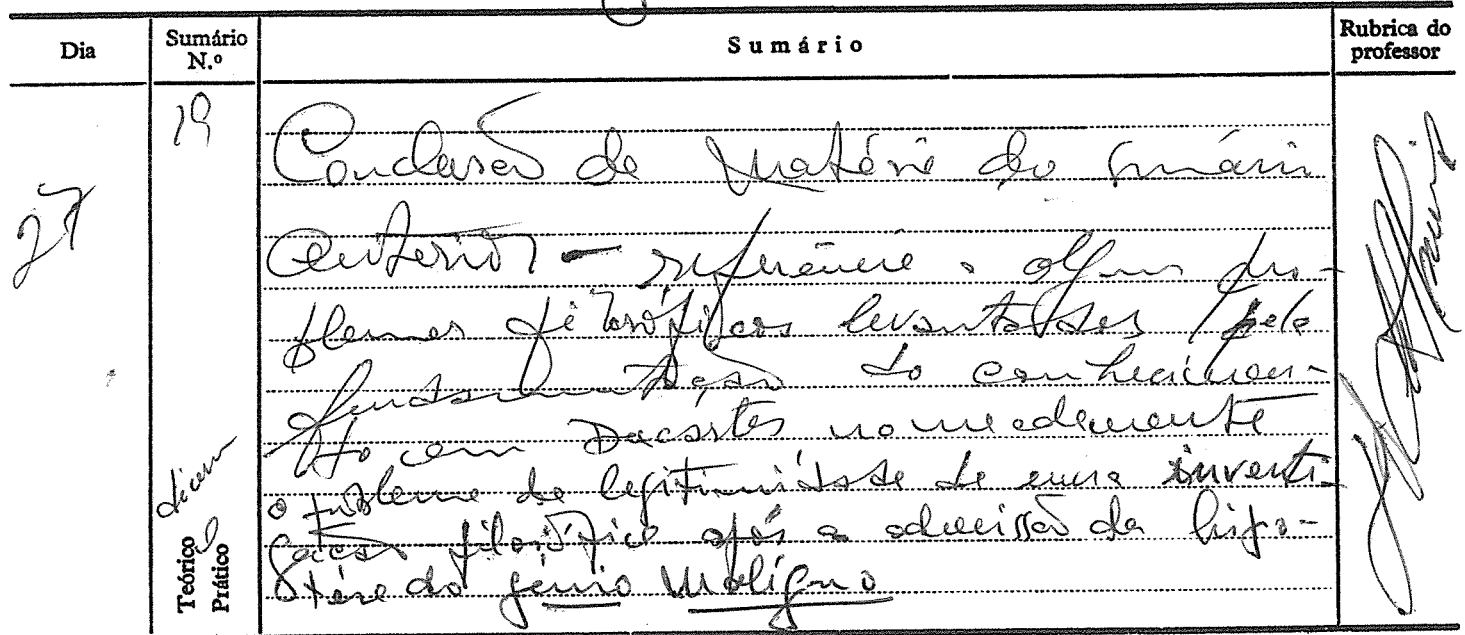 Dia
Sumário N.º
Sumário
Rubrica do professor
27
19
Conclusão da matéria do sumário
anterior — referência a alguns pro-
blemas filosóficos levantados pela
fundamentação do conhecimen-
to em Descartes nomeadamente
o problema da legitimidade de uma investi-
gação filosófica após a admissão da hipó-
tese do génio maligno
Teórico
Prático